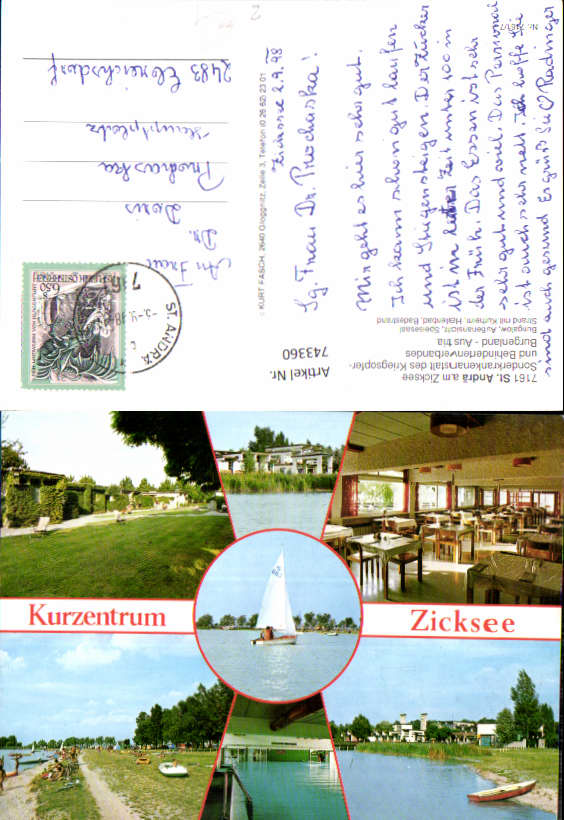 7161 St. Andrä am Zicksee
Sonderkrankenanstalt des Kriegsopfer-
und Behindertenverbandes
Burgenland - Austria
Bungalow, Außenansicht, Speisesaal
Strand mit Kurheim, Hallenbad, Badestrand
Artikel Nr. 743360
© KURT FASCH, 2640 Gloggnitz, Zeile 3, Telefon (0 26 62) 23 01
Zicksee 2.9.98
Sg. Frau Dr. Prochaska!
Mir geht es hier sehr gut.
Ich kann schon gut laufen
und Stiegensteigen. Der Zucker
ist in letzter Zeit unter 100 in
der Früh. Das Essen ist sehr
sehr gut und viel. Das Personal
ist auch sehr nett. Ich hoffe Sie
sind auch gesund Es grüßt Sie
An Frau
Dr.
Doris
Prochaska
Hauptplatz
2483 Ebreichsdorf
ST. ANDRÄ
6.50
REPUBLIK ÖSTERREICH
Kurzentrum
Zicksee